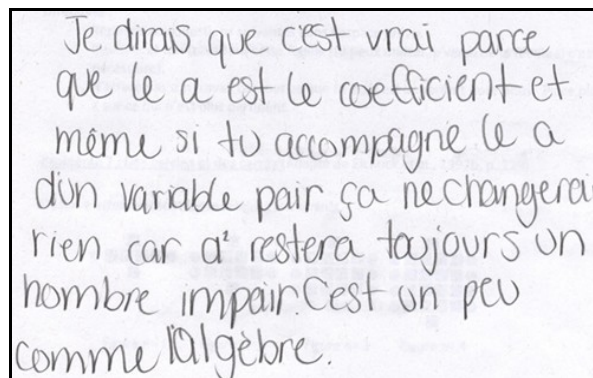 Je dirais que c'est vrai parce
que le a est le coefficient et
même si tu accompagne le a
d'un variable pair ça ne changerai
rien car a² restera toujours un
nombre impair c'est un peu
comme l'algèbre.